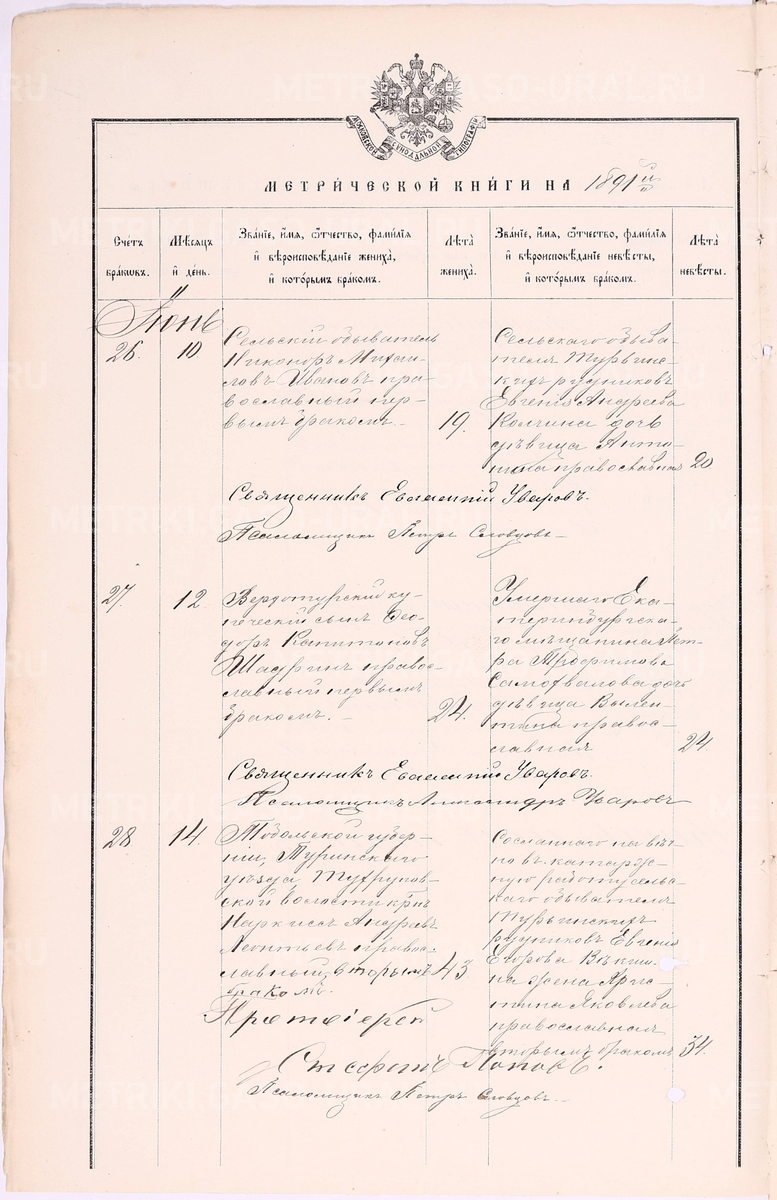 МОСКОВСКОЙ СѴНОДАЛЬНОЙ ТИПОГРАФІИ
МЕТРИ́ЧЕСКОЙ КНИ́ГИ НА 1891й
Сче́тъ бра́кѡвъ.
Мѣ́сяцъ и́ де́нь.
Зва́нїе, и҆́мя, ѻ҆́тчество, фами́лїя и҆ вѣроисповѣ́данїе жениха̀, и҆ кото́рымъ бра́комъ.
Лѣ́та жениха̀.
Зва́нїе, и҆́мя, ѻ҆́тчество, фами́лїя и҆ вѣроисповѣ́данїе невѣ́сты, и҆ кото́рымъ бра́комъ.
Лѣ́та невѣ́сты.
Іюнь
26.
10
Сельскій обыватель
Никоноръ Михаи-
ловъ Ивановъ пра-
вославный пер-
вымъ бракомъ.
19.
Сельскаго обыва-
теля Турьинс-
кихъ рудниковъ
Евгенія Андреева
Колчина дочь
дѣвица Анто-
нина православная
20
Священникъ Евлампій Уваровъ.
Псаломщикъ Петръ Словцовъ
27.
12
Верхотурскій ку-
печескій сынъ Ѳео-
доръ Капитоновъ
Шадринъ правос-
лавный первымъ
бракомъ.
24.
Умершаго Ека-
теринбургска-
го мѣщанина Пет-
ра Трофимова
Самохвалова дочь
дѣвица Вален-
тина правос-
лавная
24.
Священникъ Евлампій Уваровъ.
Псаломщикъ Александръ Уваровъ
28
14.
Тобольской губер-
ніи, Туринскаго
уѣзда,
ской волости кр-нъ
Наркиссъ Андреевъ
Леонтьевъ правос-
лавный, вторымъ
бракомъ.
43
Сосланнаго на вѣч-
но въ каторж-
ную работу сельс-
каго обывателя
Турьинскихъ
рудниковъ Евгенія
Егорова
на жена Хрис-
тина Яковлева
православная
вторымъ бракомъ
34.
Протоіерей
Стефанъ Поповъ.
Псаломщикъ Петръ Словцовъ